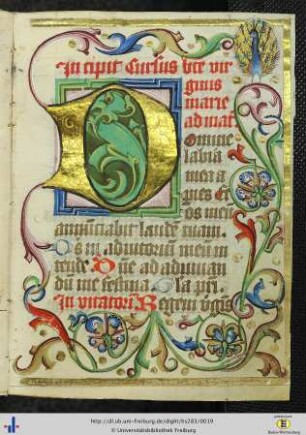 In cipit Cursus bte vir
ginis
marie
ad mat
Domine
labia
mea a
pies Et
os meu
annuciabit laude tuam.
Ds in adiutoriu meu in
tende Dne ad adiuuan
du me festina Gla pri.
In uitatoriu Regem vgis
http://dl.ub.uni-freiburg.de/diglit/hs283/0019
© Universitätsbibliothek Freiburg
Baden-Württemberg